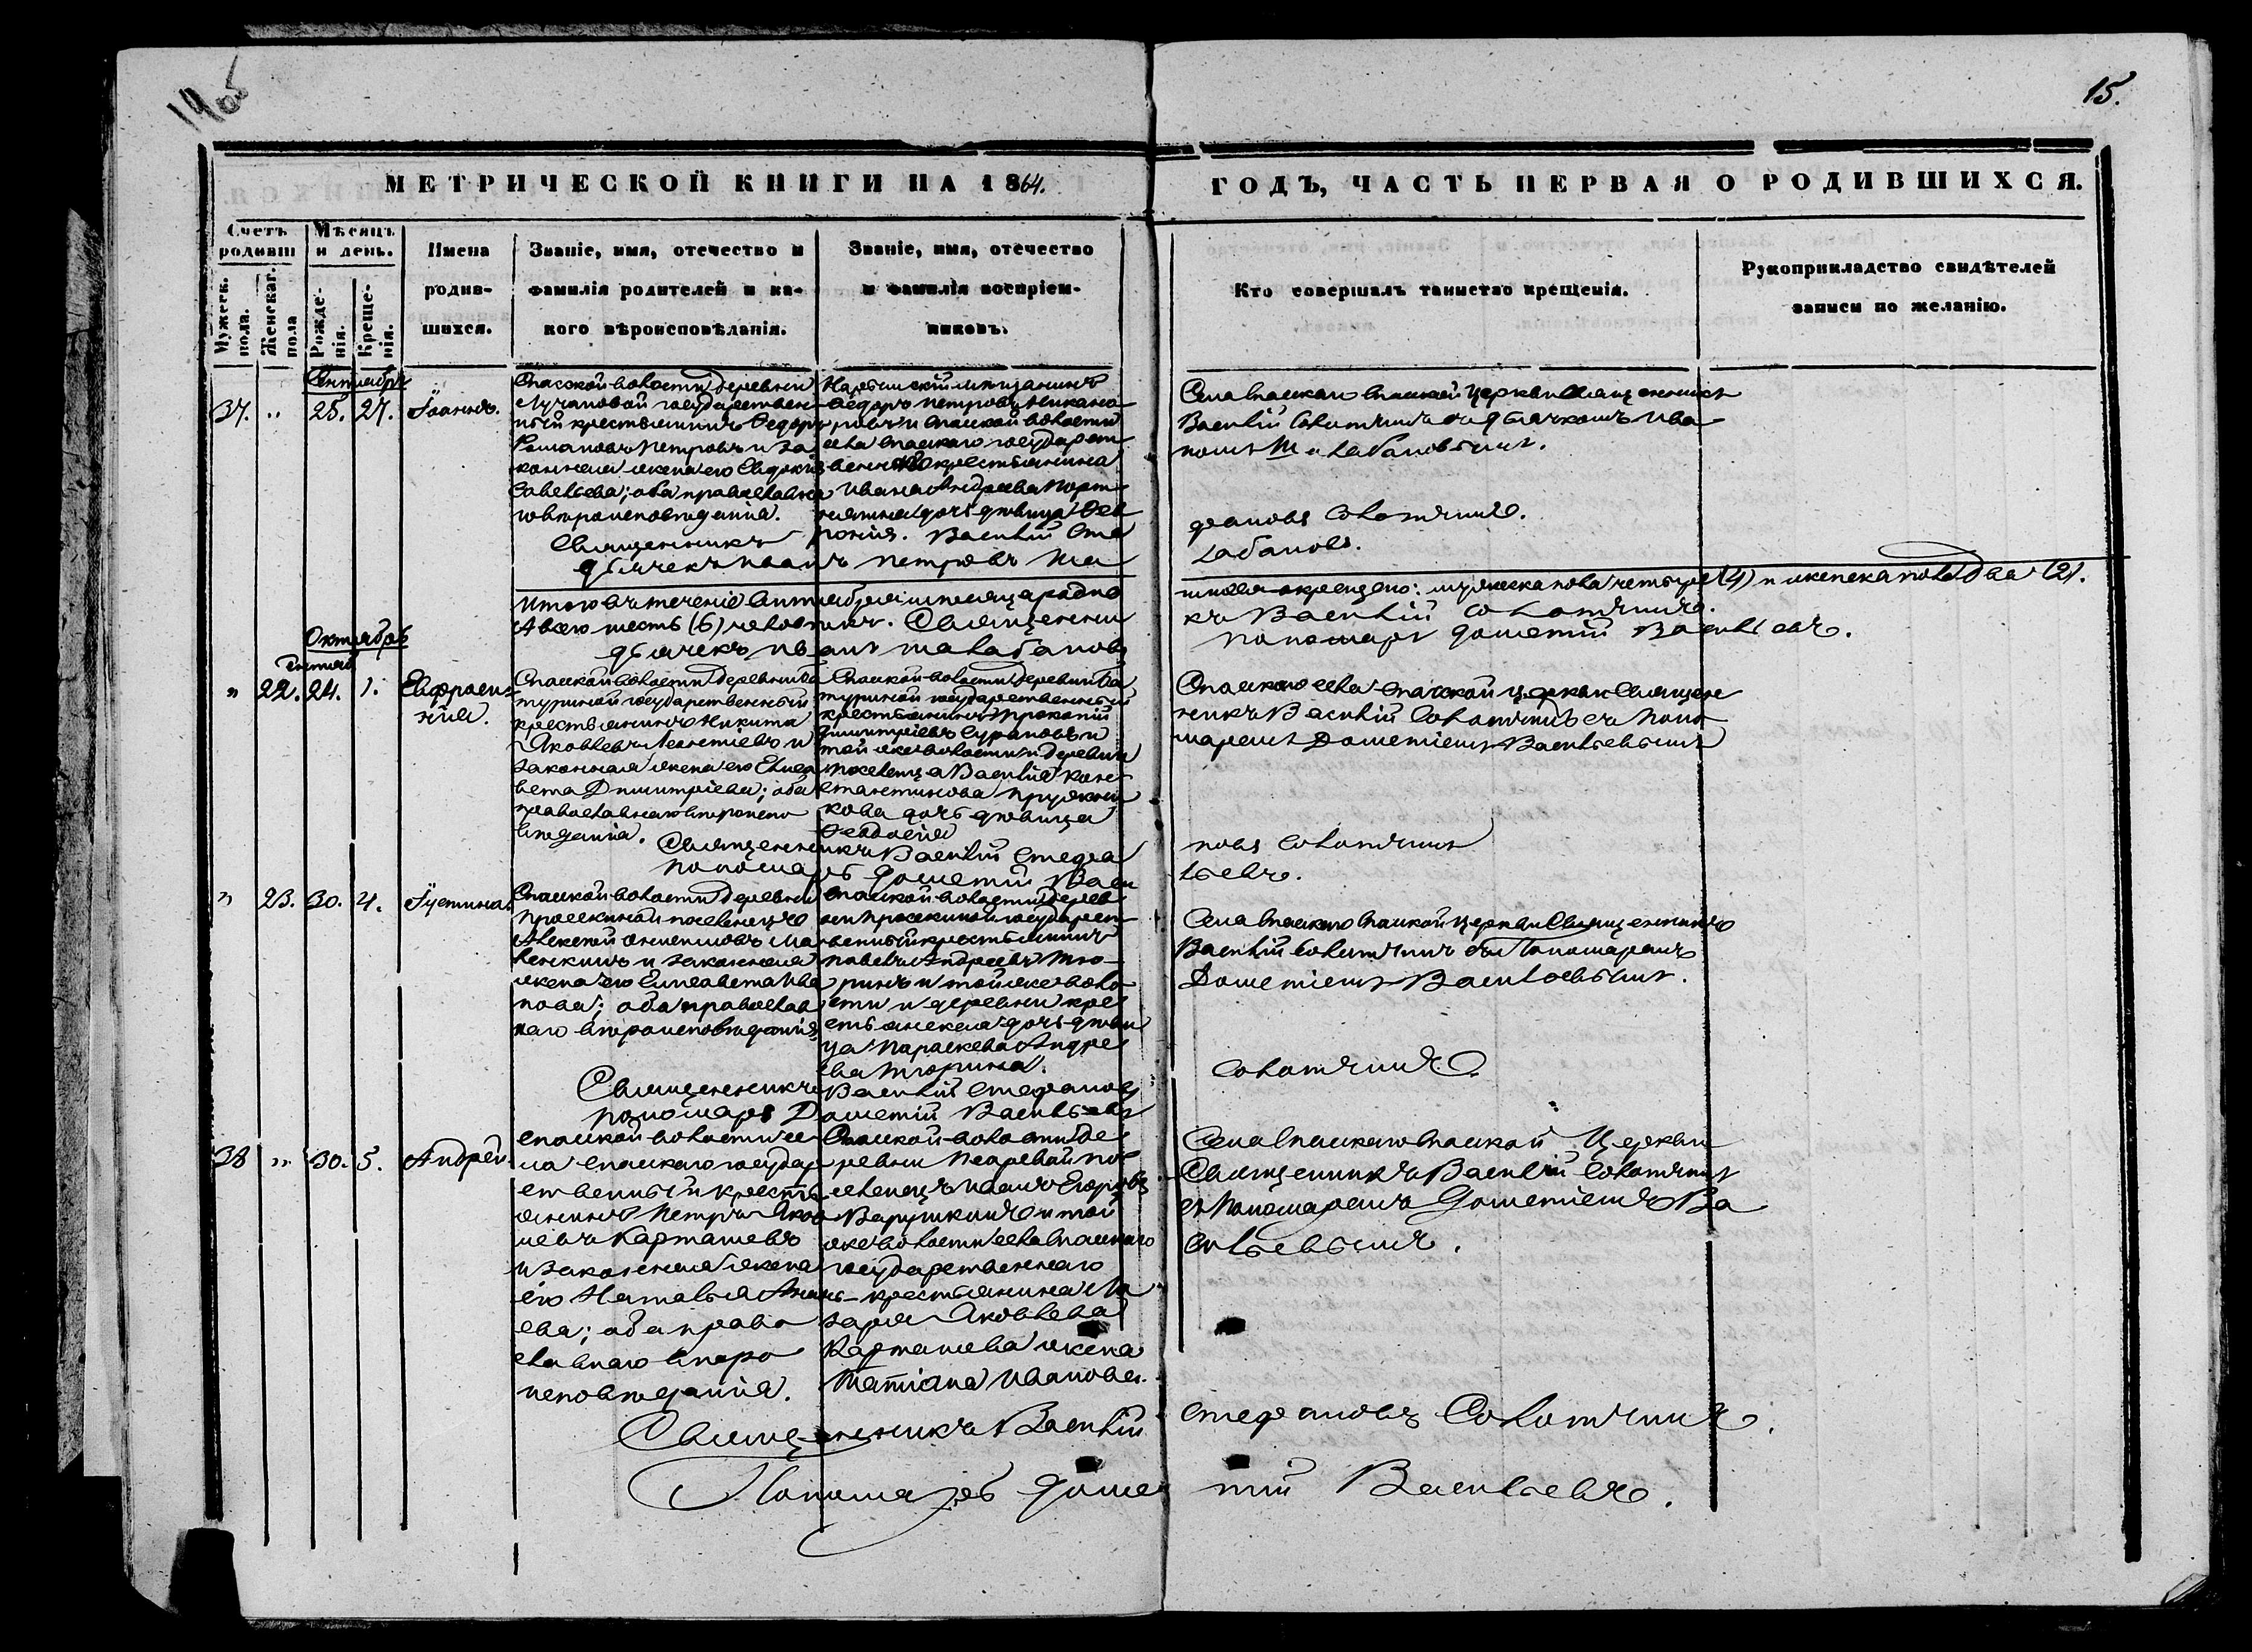 15.
МЕТРИЧЕСКОЙ КНИГИ НА 1864.
ГОДЪ, ЧАСТЬ ПЕРВАЯ О РОДИВШИХСЯ.
Счетъ родивш
Мужеск. пола.
Женскаг. пола
Мѣсяцъ и день.
Рожде-нія.
Креще-нія.
Имена
родив-
шихся.
Званіе, имя, отечество и
фамилія родителей и ка-
кого вѣроисповѣданія.
Званіе, имя, отечество
и фамилія воспріем-
никовъ.
Кто совершалъ таинство крещенія.
Рукоприкладство свидѣтелей
записи по желанію.
Сентябрь
37. " 25. 27. Іоаннъ.
Спасской волости деревни
Лучановой государствен-
ный крестьянинъ Федоръ
Романовъ Петровъ и за-
конная жена его Евдокія
Савельева; оба православна
го вѣроисповѣданія.
Нарымскій мѣщанинъ
Федоръ Петровъ Никано-
ровъ и Спасской волости
села Спаскаго государст
веннаго крестьянина
Ивана Андреева Порт-
нягина дочь дѣвица Фев
ронія.
Села Спаскаго Спаской церкви Священникъ
Василій Солотчинъ съ дьячкомъ Ива
номъ Шалабановымъ.
Священникъ Василій Сте
фановъ Солотчинъ.
дьячекъ Иванъ Петровъ Ша
лабановъ.
Итого въ теченіе Сентября мѣсяца родив
шихся крещено: мужеска пола четыре (4) и женска пола два (2).
А всего шесть (6) человѣкъ. Священни
къ Василій Солотчинъ.
дьячекъ Иванъ Шалабановъ
пономарь Дометій Васильевъ.
Октябрь
" 22. 24. 1. Евфросинія.
Спаской волости деревни Ба
туриной государственный
крестьянинъ Никита
Яковлевъ Леонтіевъ и
законная жена его Елиса
вета Дмитріева; оба
православнаго вѣроиспо
вѣданія.
Спаской волости деревни Ба
туриной государственный
крестьянинъ Прокопій
Димитріевъ Сурановъ и
той же волости и деревни
поселенца Василія Кон-
стантинова Пружини
кова дочь дѣвица
Февдосія
Спаскаго села Спаской церкви Священ
никъ Василій Солотчинъ съ Поно
маремъ Дометіемъ Васильевымъ
Священникъ Василій Стефа
новъ Солотчинъ
Пономарь Дометій Васи
льевъ.
" 23. 30. 4. Іустина.
Спаской волости деревни
Просекиной поселенецъ
Алексѣй Онисимовъ Ма
ленкинъ и законная
жена его Елисавета Ива
нова; оба православ
наго вѣроисповѣданія
Спаской волости дерев
ни Просекиной государст
венный крестьянинъ
Павелъ Андреевъ Тю-
ринъ и той же воло
сти и деревни кре
стьянская дочь дѣви
ца Параскева Андре
ева Тюрина.
Села Спаскаго Спаской церкви Священникъ
Василій Солотчинъ съ Пономаремъ
Дометіемъ Васильевымъ.
Священникъ Василій Стефановъ
Солотчинъ.
пономарь Дометій Васильевъ
38 " 30. 5. Андрей.
Спаской волости се
ла Спаскаго государ
ственный кресть
янинъ Петръ Яков
левъ Карташевъ
и законная жена
его Наталья Анань-
ева; оба право
славнаго вѣро
исповѣданія.
Спаской волости де
ревни Петровой по
селенецъ Иванъ Егоровъ
Варушкинъ и той
же волости села Спаскаго
государственнаго
крестьянина Ла
заря Яковлева
Карташева жена
Татіана Иванова.
Села Спаскаго Спаской Церкви
Священникъ Василій Солотчинъ
съ Пономаремъ Дометіемъ Ва
сильевымъ.
Священникъ Василій Стефановъ Солотчинъ.
Пономарь Дометій Васильевъ.